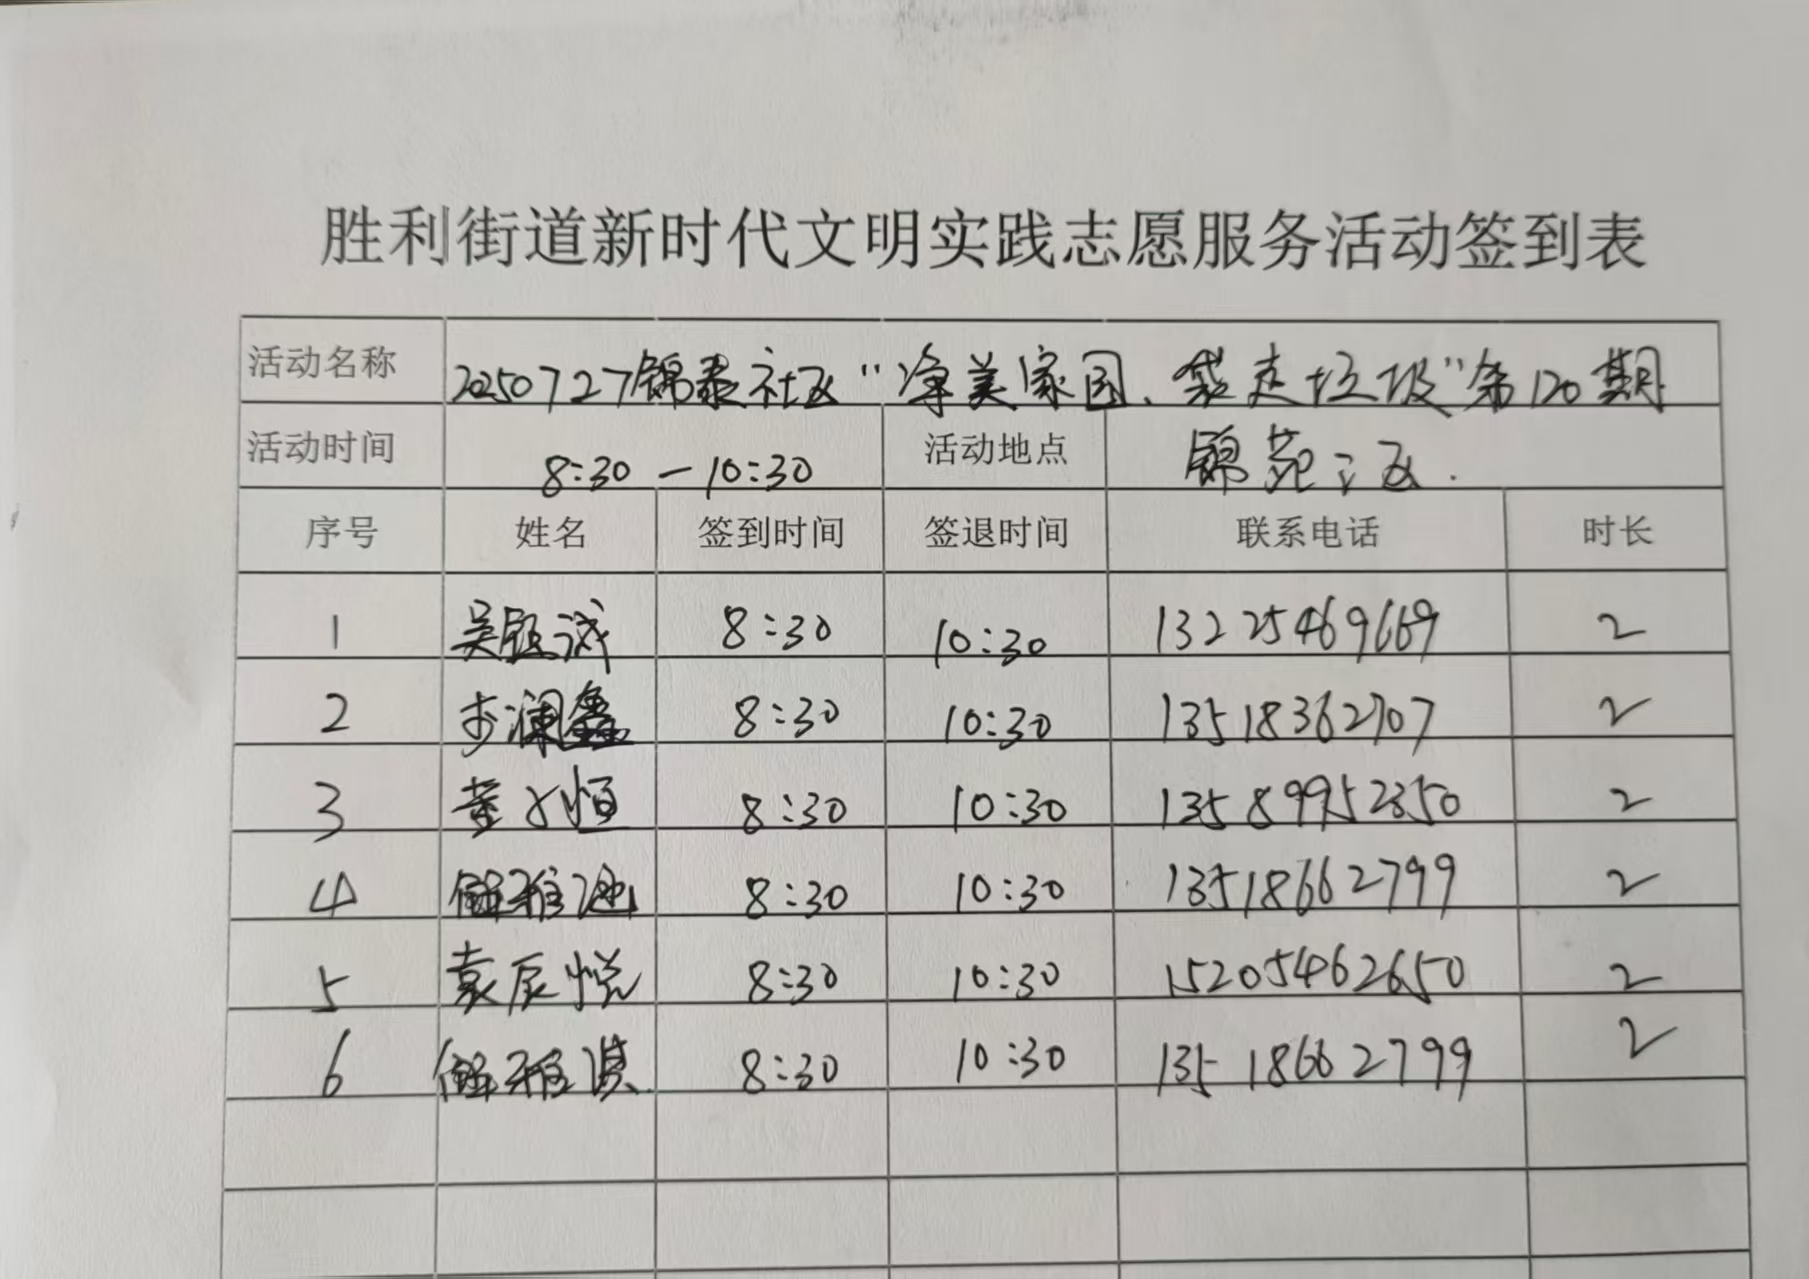 胜利街道新时代文明实践志愿服务活动签到表
活动名称 20250727锦泰社区“净美家园、袋走垃圾”第120期
活动时间 8:30-10:30 活动地点 锦苑三区.
序号 姓名 签到时间 签退时间 联系电话 时长
1 吴 诚 8:30 10:30 13225469669 2
2 步澜鑫 8:30 10:30 13518362707 2
3 董 恒 8:30 10:30 13589952350 2
4 雅 8:30 10:30 13518662799 2
5 袁辰悦 8:30 10:30 15205462650 2
6 雅淇 8:30 10:30 13518662799 2